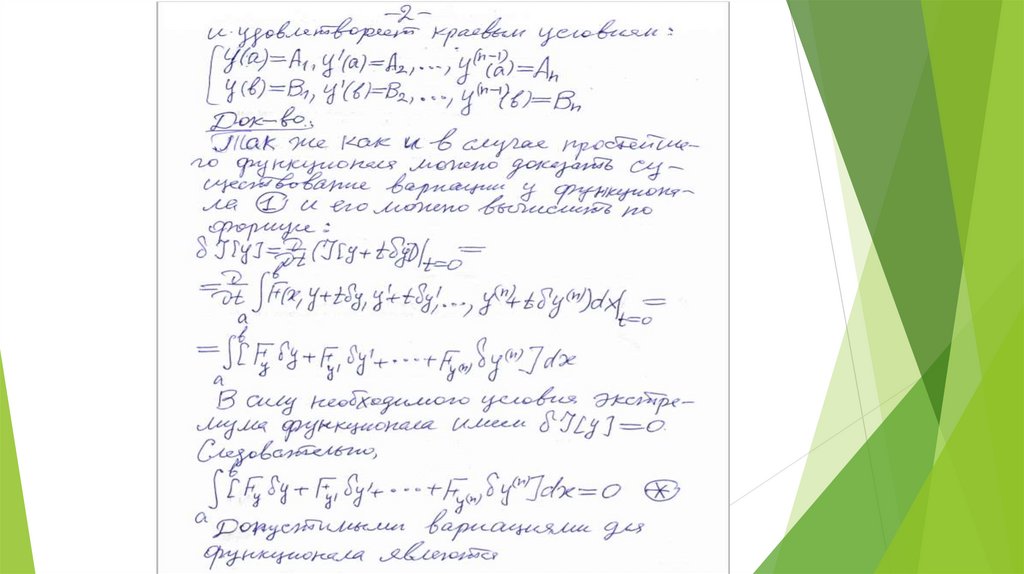 -2-
и удовлетворяет краевым условиям:
y(a)=A₁, y'(a)=A₂, ..., y⁽ⁿ⁻¹⁾(a)=Aₙ
y(в)=B₁, y'(в)=B₂, ..., y⁽ⁿ⁻¹⁾(в)=Bₙ
Док-во.:
Так же как и в случае простейше-
го функционала можно доказать су-
ществование вариации у функциона-
ла ① и его можно вычислить по
формуле:
δJ[y]=∂/∂t (J[y+tδy])|t=0 =
=∂/∂t ∫ₐᵇ F(x, y+tδy, y'+tδy', ..., y⁽ⁿ⁾+tδy⁽ⁿ⁾)dx|t=0 =
=∫ₐᵇ [F_y δy+F_y' δy'+...+F_y⁽ⁿ⁾ δy⁽ⁿ⁾]dx
В силу необходимого условия экстре-
мума функционала имеем δJ[y]=0.
Следовательно,
∫ₐᵇ [F_y δy+F_y' δy'+...+F_y⁽ⁿ⁾ δy⁽ⁿ⁾]dx=0 (*)
Допустимыми вариациями для
функционала являются